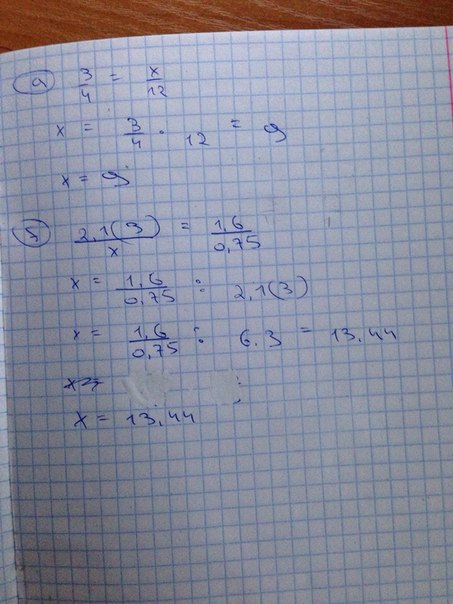 а) 3/4 = x/12
x = 3/4 · 12 = 9
x = 9
б) 2,1(3)/x = 1,6/0,75
x = 1,6/0,75 : 2,1(3)
x = 1,6/0,75 : 6.3 = 13.44
x = 13,44